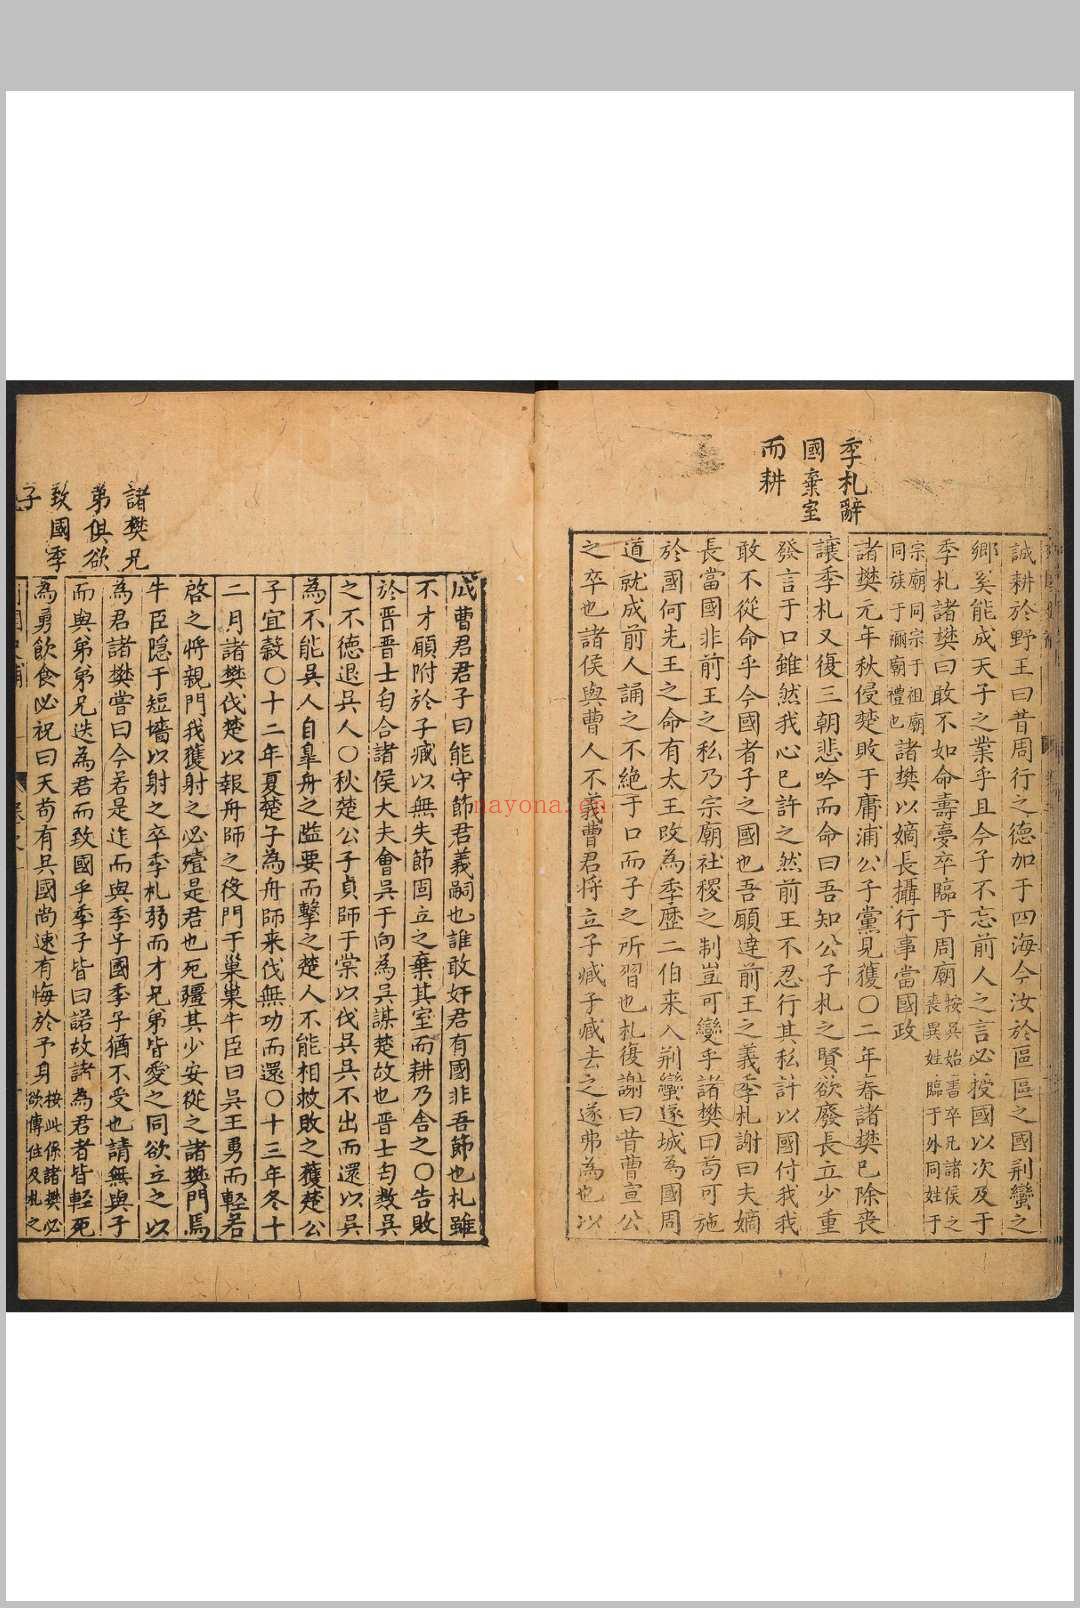 季札辭
國棄室
而耕
誠耕於野王曰昔周行之德加于四海今汝於區區之國荆蠻之
鄉奚能成天子之業乎且今子不忘前人之言必授國以次及于
季札諸樊曰敢不如命壽夢卒臨于周廟按吳始書卒凡諸侯之
喪異姓臨于外同姓于
宗廟同宗于祖廟
同族于禰廟禮也諸樊以嫡長攝行事當國政
諸樊元年秋侵楚敗于庸浦公子黨見獲〇二年春諸樊已除喪
讓季札又復三朝悲吟而命曰吾知公子札之賢欲廢長立少重
發言于口雖然我心已許之然前王不忍行其私計以國付我我
敢不從命乎今國者子之國也吾願達前王之義季札謝曰夫嫡
長當國非前王之私乃宗廟社稷之制豈可變乎諸樊曰苟可施
於國何先王之命有太王改為季歷二伯来入荆蠻遂城為國周
道就成前人誦之不絕于口而子之所習也札復謝曰昔曹宣公
之卒也諸侯與曹人不義曹君將立子臧子臧去之遂弗為也以
諸樊兄
弟俱欲
致國季
子
成曹君君子曰能守節君義嗣也誰敢奸君有國非吾節也札雖
不才願附於子臧以無失節固立之棄其室而耕乃舍之〇告敗
於晋晋士匄合諸侯大夫會吳于向為吳謀楚故也晋士匄數吳
之不德退吳人〇秋楚公子貞師于棠以伐吳吳不出而還以吳
為不能吳人自臯舟之隘要而擊之楚人不能相救敗之獲楚公
子宜穀〇十二年夏楚子為舟師来伐無功而還〇十三年冬十
二月諸樊伐楚以報舟師之役門于巢巢牛臣曰吳王勇而輕若
啓之將親門我獲射之必殪是君也死疆其少安從之諸樊門焉
牛臣隱于短墻以射之卒季札弱而才兄弟皆愛之同欲立之以
為君諸樊嘗曰今若是迮而與季子國季子猶不受也請無與子
而與弟弟兄迭為君而致國乎季子皆曰諾故諸為君者皆輕死
為勇飲食必祝曰天苟有吳國尚速有悔於予身按此係諸樊必
欲傳位及札之
nayona.cn